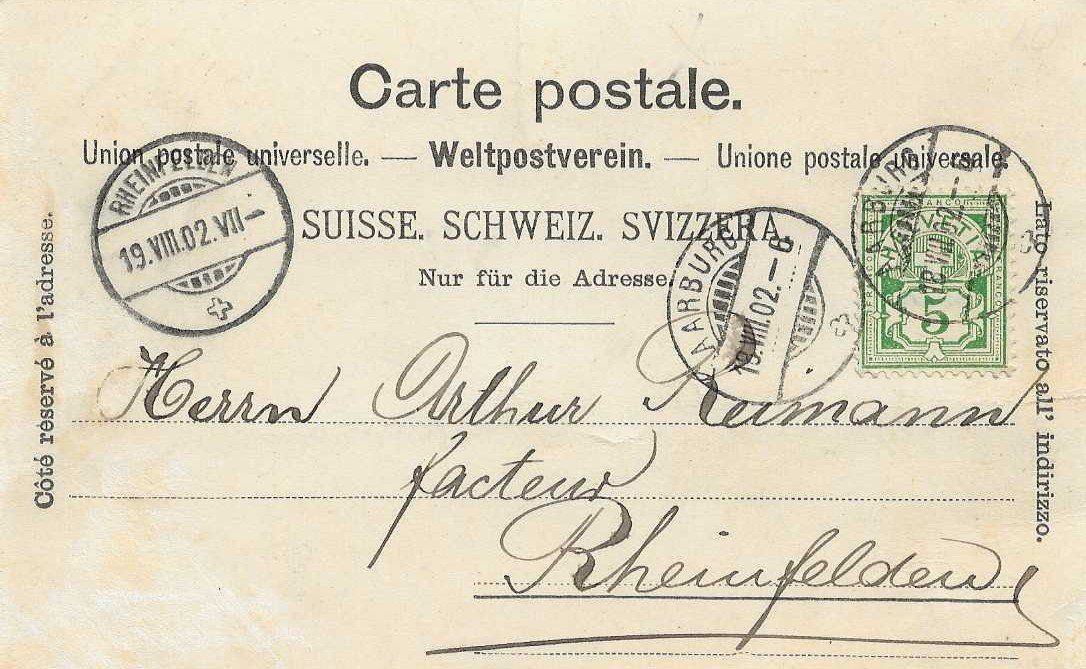 Carte postale.
Union postale universelle. — Weltpostverein. — Unione postale universale.
SUISSE. SCHWEIZ. SVIZZERA.
Nur für die Adresse.
Côté réservé à l'adresse.
Lato riservato all' indirizzo.
RHEINFELDEN
19.VIII.02.VII–
AARBURG
19.VIII.02.–6
AARBURG
FRANCO
HELVETIA
FRANCO
FRANCO
5
Herrn Arthur Reimann
facteur
Rheinfelden